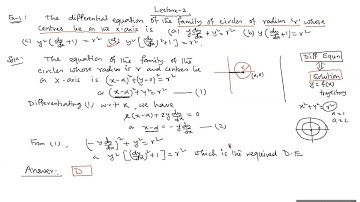 Lecture-2
Ex 1: The differential equation of the family of circles of radius 'r' whose
centres lie on the x-axis is (a) y dy/dx + y² = r² (b) y(dy/dx + 1) = r²
(c) y²(dy/dx + 1) = r² (d) y²[(dy/dx)² + 1] = r².
Soln: The equation of the family of the
circles whose radius is r and centres lie
on x-axis is (x-α)² + (y-0)² = r²
or (x-α)² + y² = r² —— (1)
Differentiating (1) w.r.t x, we have
2(x-α) + 2y dy/dx = 0
or x-α = -y dy/dx — (2)
From (1), (-y dy/dx)² + y² = r²
or y²[(dy/dx)² + 1] = r² which is the required D.E
Answer: D
(α,0)
Diff Equn
Solution
y = f(x)
trajectory
x² + y² = r²